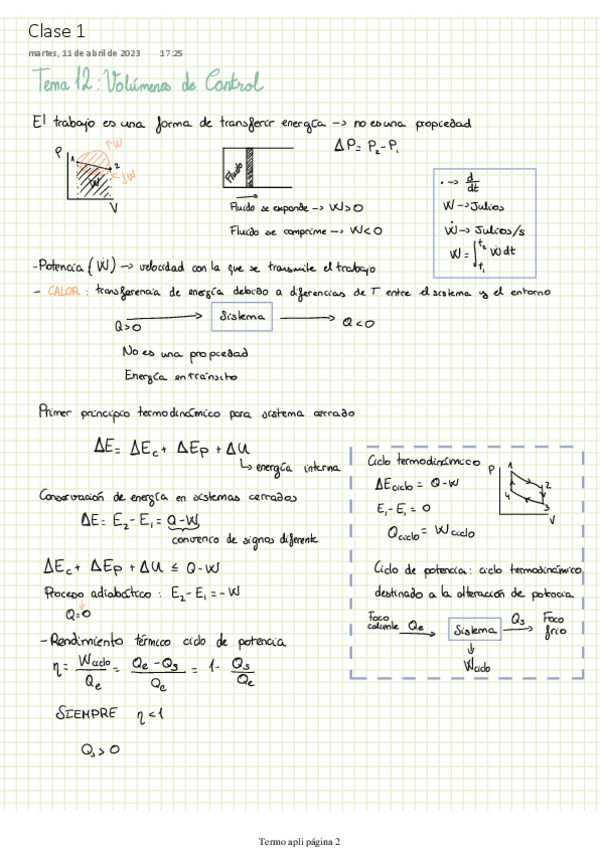 Clase 1
martes, 11 de abril de 2023 17:25
Tema 12: Volúmenes de Control
El trabajo es una forma de transferir energía → no es una propiedad
ΔP = P₂ - P₁
P 1 2 W V
↑W
↓W
Fluido
Fluido se expande → W>0
Fluido se comprime → W<0
· → d/dt
W → Julios
Ẇ → Julios/s
W = ∫_{t₁}^{t₂} Ẇ dt
- Potencia (Ẇ) → velocidad con la que se transmite el trabajo
- CALOR: transferencia de energía debido a diferencias de T entre el sistema y el entorno
Q>0 → Sistema → Q<0
No es una propiedad
Energía en tránsito
Primer principio termodinámico para sistema cerrado
ΔE = ΔEc + ΔEp + ΔU
↳ energía interna
Conservación de energía en sistemas cerrados
ΔE = E₂ - E₁ = Q - W
convenio de signos diferente
ΔEc + ΔEp + ΔU ≤ Q - W
Proceso adiabático: E₂ - E₁ = - W
Q=0
- Rendimiento térmico ciclo de potencia
η = Wciclo/Qe = (Qe - Qs)/Qe = 1 - Qs/Qe
SIEMPRE η<1
Qs > 0
Ciclo termodinámico
P 1 2 3 4 V
ΔEciclo = Q - W
E₁ - E₁ = 0
Qciclo = Wciclo
Ciclo de potencia: ciclo termodinámico
destinado a la
Foco caliente Qe → Sistema Qs → Foco frío
↓
Wciclo
Termo apli página 2